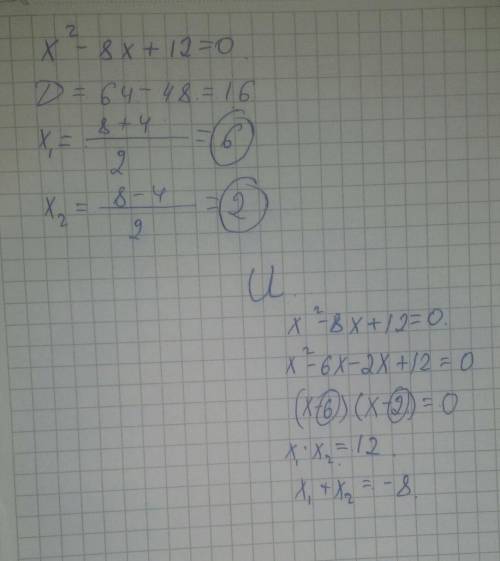 x² - 8x + 12 = 0.
D = 64 - 48 = 16
x₁ = (8 + 4)/2 = 6
x₂ = (8 - 4)/2 = 2
И
x² - 8x + 12 = 0.
x² - 6x - 2x + 12 = 0
(x - 6)(x - 2) = 0
x₁ · x₂ = 12
x₁ + x₂ = -8.